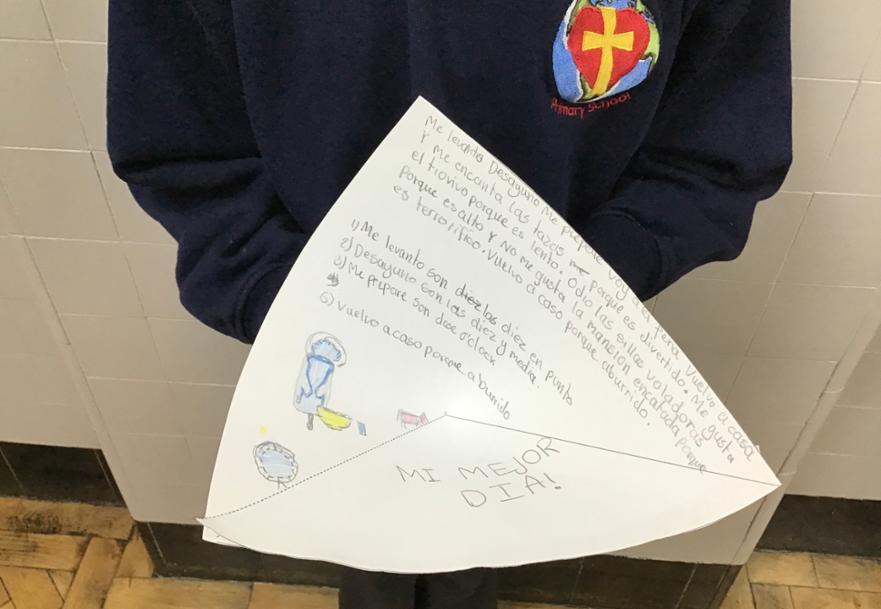 Primary School
Me levanto Desayuno Me prepare Voy a la feria Vuelvo a casa
Y me encanta las tazas porque es divertido. Me gusta
el tiovivo porque es lento. Odio las sillas voladoras
porque es alto Y No me gusta la mansion encatada porque
es terrorífico. Vuelvo a casa porque aburrido.
1) Me levanto son las diez en punto
2) Desayuno son las diez y media.
3) Me prepare son dose o'clock
6) Vuelvo a casa porque aburrido
MI MEJOR
DIA!